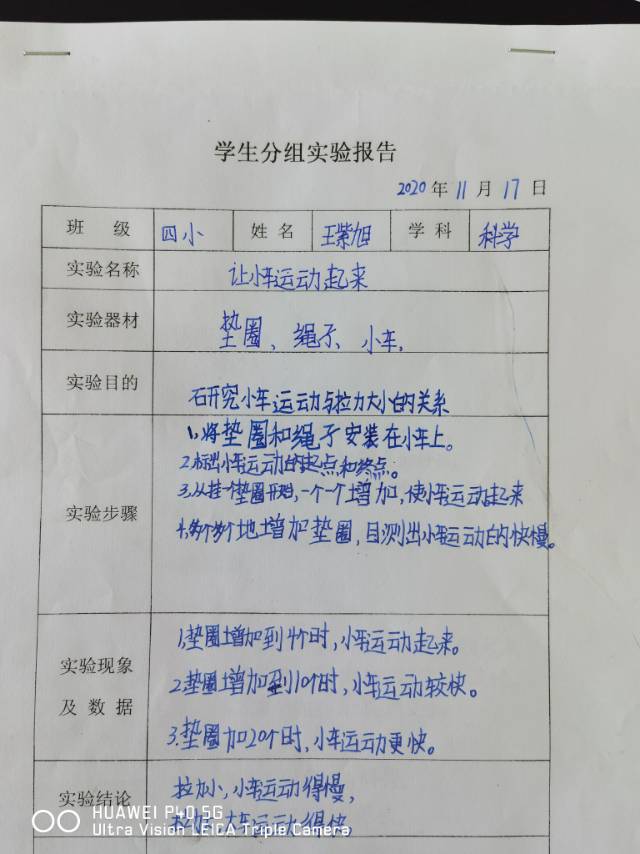 学生分组实验报告
2020年11月17日
班级 四小 姓名 王紫旭 学科 科学
实验名称 让小车运动起来
实验器材 垫圈、绳子、小车.
实验目的 研究小车运动与拉力大小的关系
实验步骤
1、将垫圈和绳子安装在小车上。
2.标出小车运动的起点和终点。
3.从挂一个垫圈开始,一个一个增加,使小车运动起来
4.多个多个地增加垫圈,目测出小车运动的快慢。
实验现象
及数据
1.垫圈增加到4个时,小车运动起来。
2.垫圈增加到10个时,小车运动较快。
3.垫圈加20个时,小车运动更快。
实验结论
拉力小,小车运动得慢,
车运动得快
HUAWEI P40 5G
Ultra Vision LEICA Triple Camera